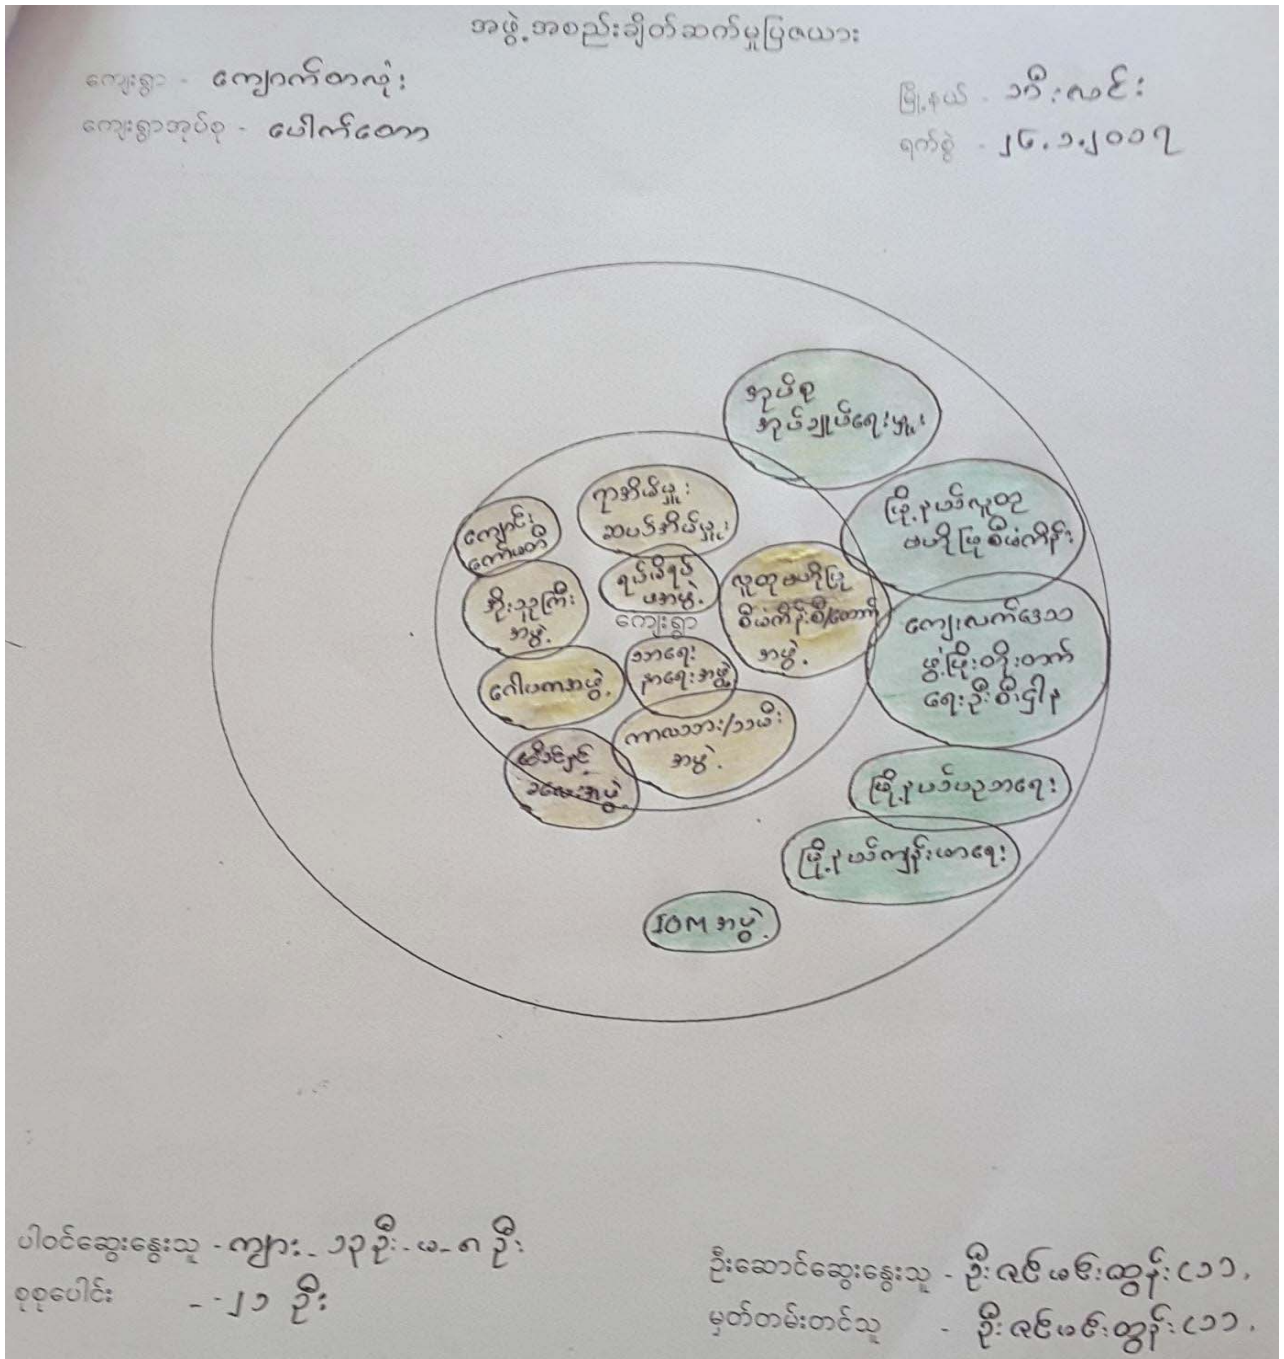 အဖွဲ့အစည်းချိတ်ဆက်မှုပြဇယား
ကျေးရွာ - ကျောက်တလုံး
ကျေးရွာအုပ်စု - ပေါက်တော
မြို့နယ် - သီးလင်း
ရက်စွဲ - ၂၆.၁.၂၀၁၇
အုပ်စု
အုပ်ချုပ်ရေးမှူး
မြို့နယ်လူထု
ဗဟိုပြုစီမံကိန်း
ကျေးလက်ဒေသ
ဖွံ့ဖြိုးတိုးတက်
ရေးဦးစီးဌါန
မြို့နယ်ပညာရေး
မြို့နယ်ကျန်းမာရေး
IOM အဖွဲ့
ရာအိမ်မှူး
ဆယ်အိမ်မှူး
ကျောင်း
ကော်မတီ
ရပ်မိရပ်
ဖအဖွဲ့
လူထုဗဟိုပြု
စီမံကိန်းစီ/ထောက်
အဖွဲ့
အိုးသူကြီး
အဖွဲ့
ကျေးရွာ
သာရေး
နာရေးအဖွဲ့
ဂေါပကအဖွဲ့
ကာလသား/သမီး
အဖွဲ့
မိခင်နှင့်
ခလေးအဖွဲ့
ပါဝင်ဆွေးနွေးသူ - ကျား - ၁၃ ဦး - မ - ၈ ဦး
စုစုပေါင်း - ၂၁ ဦး
ဦးဆောင်ဆွေးနွေးသူ - ဦးဇင်မင်းထွန်း (၁၁)
မှတ်တမ်းတင်သူ - ဦးဇင်မင်းထွန်း (၁၁)